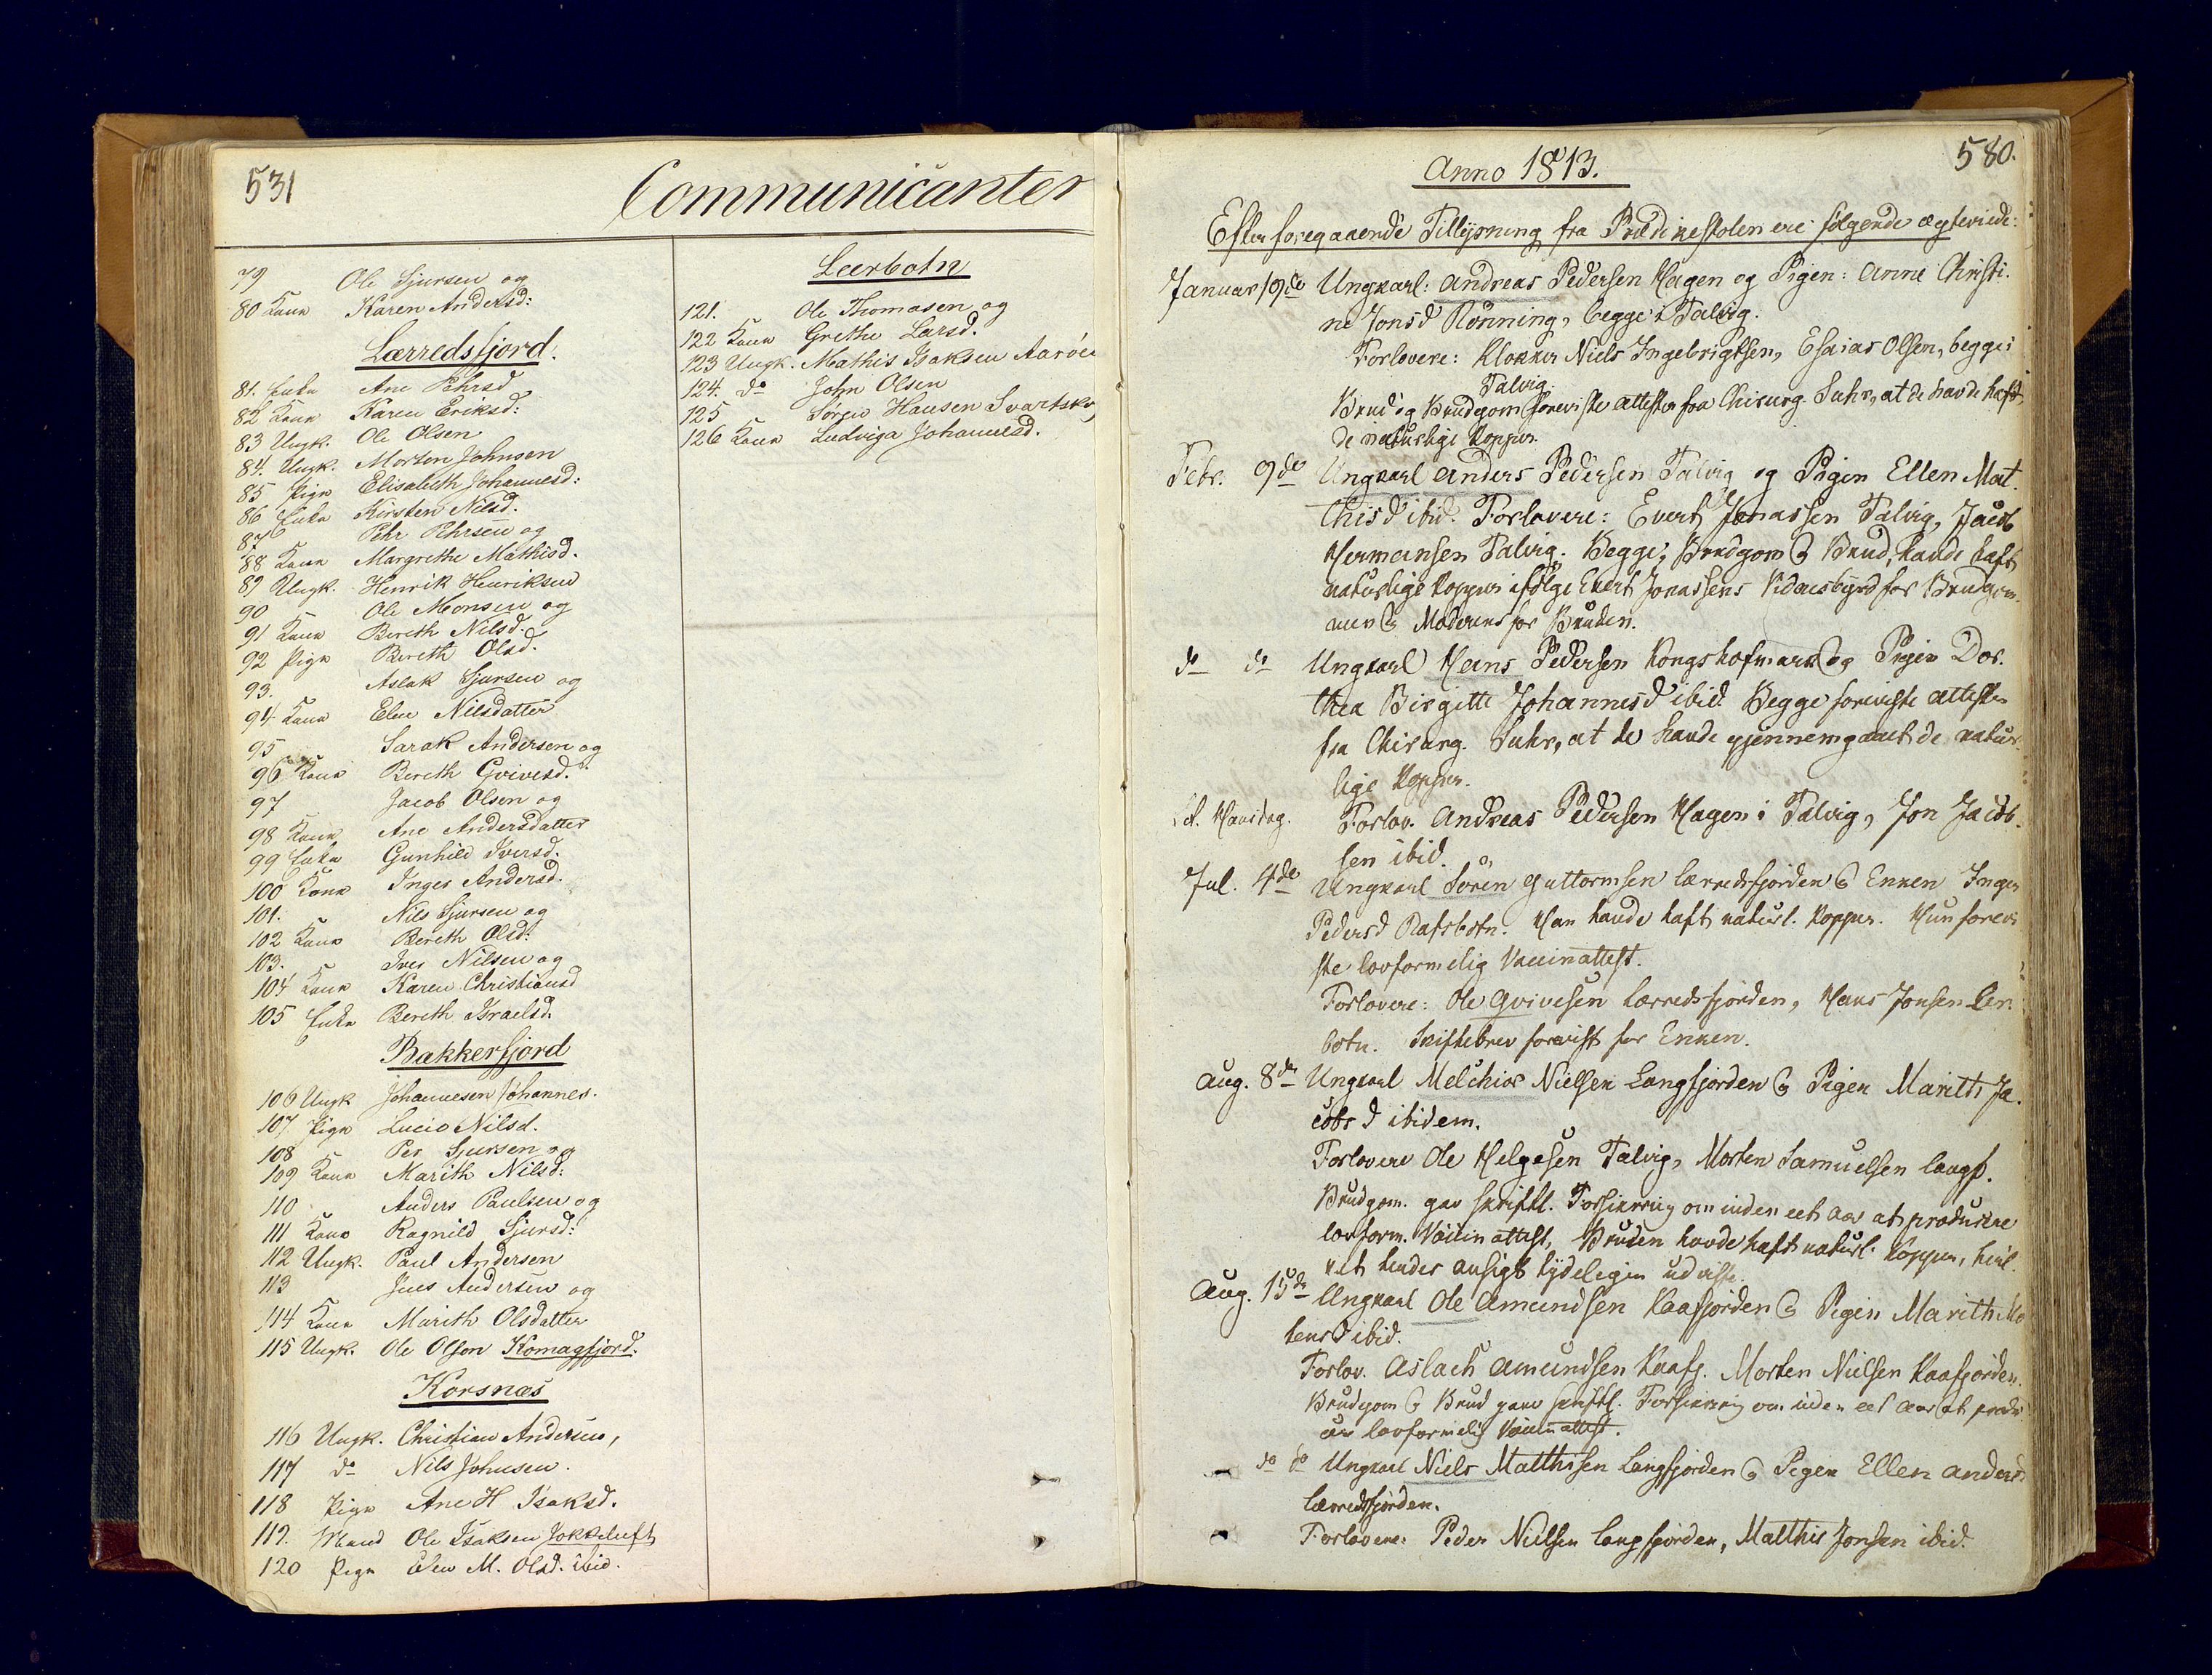 531
Communicanter
79 Ole Sjursen og
80 Kone Karen Andersd:
Lærredsfjord.
81. Enke Ane Pehrsd
82 Kone Karen Eriksd:
83 Ungk. Ole Olsen
84. Ungk. Morten Johnsen
85 Pige Elisabeth Johannesd:
86 Enke Kirsten Nilsd.
87 Pehr Pehrsen og
88 Kone Margrethe Mathisd.
89 Ungk. Henrik Henriksen
90 Ole Monsen og
91 Kone Bereth Nilsd.
92 Pige Bereth Olsd.
93. Aslak Sjursen og
94 Kone Elen Nilsdatter
95 Sarak Andersen og
96 Kone Bereth Gvivesd.
97 Jacob Olsen og
98 Kone Ane Andersdatter
99 Enke Gunhild Iversd.
100 Kone Inger Andersd.
101. Nils Sjursen og
102 Kone Bereth Olsd:
103. Iver Nilsen og
104 Kone Karen Christiansd
105 Enke Bereth Israelsd.
Bakkerfjord
106 Ungk Johannesen Johannes.
107 Pige Lucie Nilsd.
108 Per Sjursen og
109 Kone Marith Nilsd:
110 Anders Paulsen og
111 Kone Ragnild Sjursd:
112 Ungk. Paul Andersen
113 Jens Andersen og
114 Kone Marith Olsdatter
115 Ungk. Ole Olsen Komagfjord.
Korsnæs
116 Ungk. Christian Andersen,
117 do Nils Johnsen.
118 Pige Ane H Isaksd.
119. Mand Ole Isaksen Jokkeluft
120 Pige Elen M. Olsd. ibid.
Leerbotn
121. Ole Thomasen og
122 Kone Grethe Larsd.
123 Ungk. Mathis Isaksen Aarøen
124. do John Olsen
125 Søren Hansen Svartskv
126 Kone Ludviga Johannesd.
580.
Anno 1813.
Efter foregaaende Tillysning fra Prædikestolen ere følgende ægteviede:
Januar 19de Ungkarl: Andreas Pedersen Hagen og Pigen: Anne Christi-
ne Jonsd Rönning, begge i Talvig.
Forlovere: Klokker Niels Ingebrigtsen, Esaias Olsen, begge i
Talvig.
Brud og Brudgom foreviste Attester fra Chirurg Suhr, at de havde haft
de naturlige Kopper.
Febr. 9de Ungkarl Anders Pedersen Talvig og Pigen Ellen Mat-
thisd ibid. Forlovere: Evert Jonassen Talvig, Jacob
Hermansen Talvig. Begge, Brudgom & Brud, havde haft
naturlige Kopper ifölge Evert Jonassens Vidnesbyrd for Brudgom-
men & Moderens for Bruden.
do do Ungkarl Hans Pedersen Kongshofmark og Pigen Dor-
thea Birgitte Johannesd ibid. Begge foreviste Attester
fra Chirurg. Suhr, at de havde gjennemgaaet de natur-
lige Kopper.
Forlov. Andreas Pedersen Hagen i Talvig, Jon Jacob-
sen ibid.
Jul. 4de Ungkarl Sören Guttormsen Lærredsfjorden & Enken Inger
Pedersd Rafsbotn. Han havde haft naturl. Kopper. Hun forevi-
ste lovformelig Vaccinattest.
Forlovere: Ole Gvivesen Lærredsfjorden, Hans Jonsen Ler-
botn. Skiftebrev forevist for Enken.
Aug. 8de Ungkarl Melchior Nielsen Langfjorden & Pigen Marith Ja-
cobsd ibidem.
Forlovere Ole Helgesen Talvig, Morten Samuelsen Langf.
Brudgom. gav skriftl. Forsikkring om inden eet Aar at producere
lovform. Vaccinattest, Bruden havde haft naturl. Kopper, hvil-
ket hendes Ansigt tydeligen udviste.
Aug. 15de Ungkarl Ole Amundsen Kaafjorden & Pigen Marith Mo
tensd ibid.
Forlov. Aslach Amundsen Kaafj. Morten Nielsen Kaafjorden.
Brudgom & Brud gave skriftl. Forsikkring om inden eet Aar at produ
cere lovformelig Vaccinattest.
do do Ungkarl Niels Matthisen Langfjorden & Pigen Ellen Andersd
Lærredsfjorden.
Forlovere: Peder Nielsen Langfjorden, Matthis Jonsen ibid.